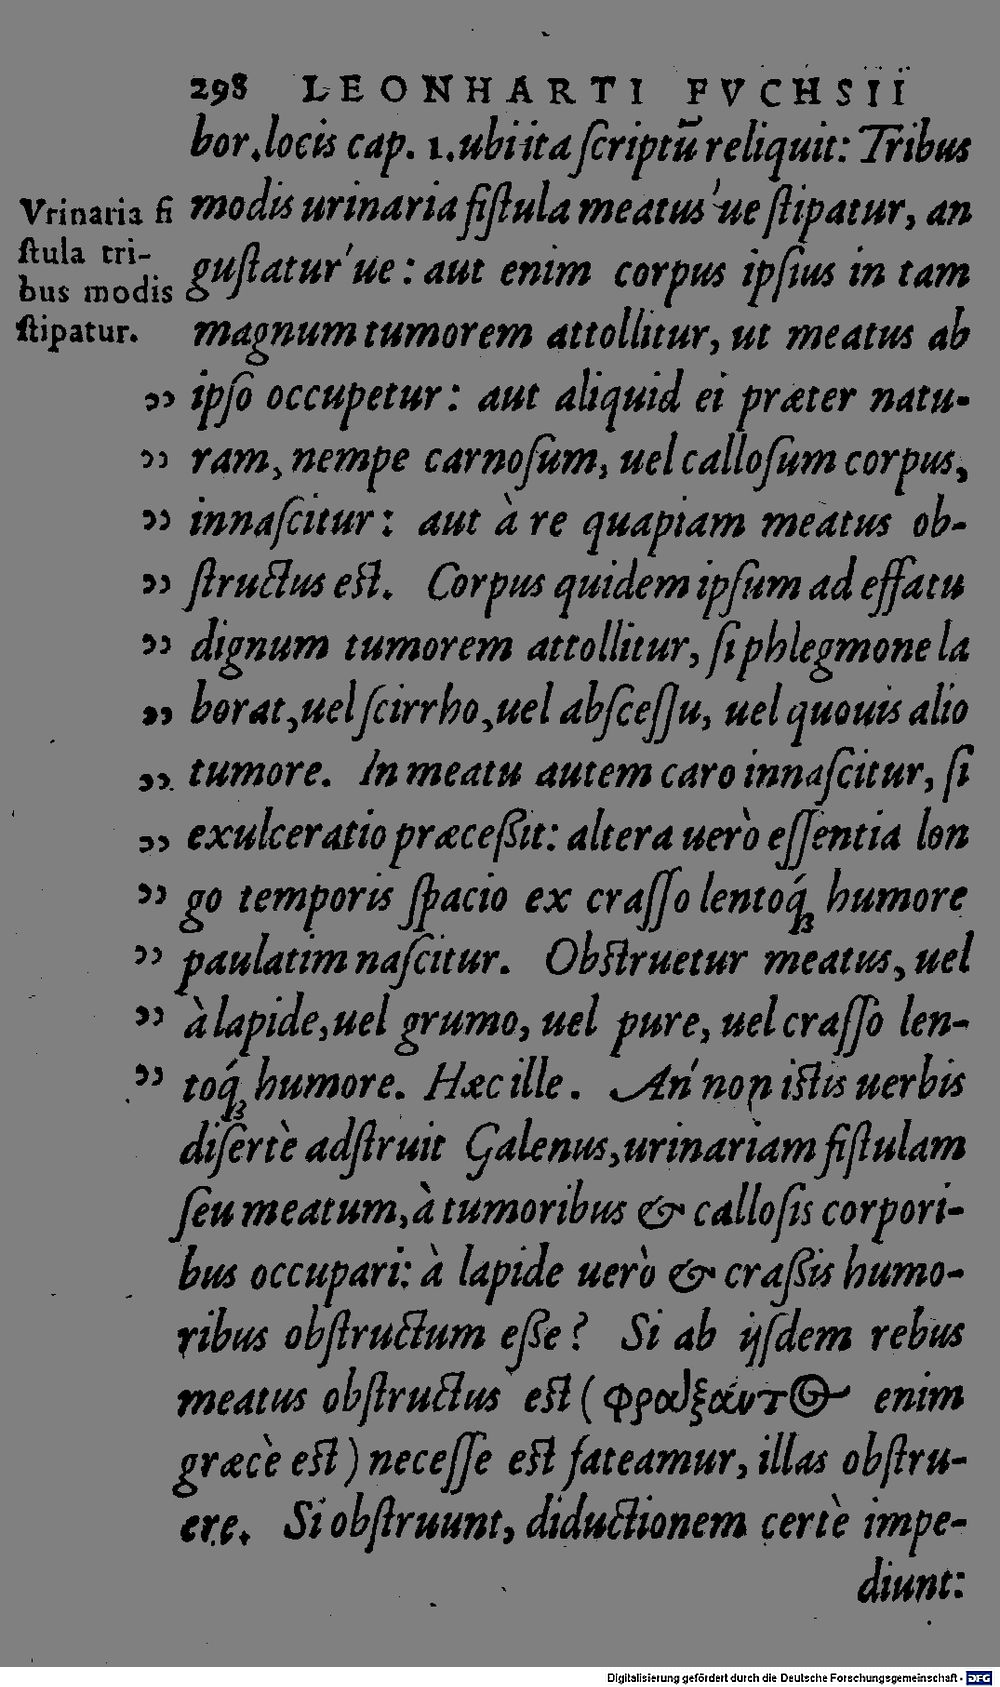 298 LEONHARTI FVCHSII
bor. locis cap. 1. ubi ita ſcriptũ reliquit: Tribus
modis urinaria fiſtula meatus'ue ſtipatur, an
guſtatur'ue: aut enim corpus ipſius in tam
magnum tumorem attollitur, ut meatus ab
ipſo occupetur: aut aliquid ei præter natu-
ram, nempe carnoſum, uel calloſum corpus,
innaſcitur: aut à re quapiam meatus ob-
ſtructus est. Corpus quidem ipſum ad effatu
dignum tumorem attollitur, ſi phlegmone la
borat, uel ſcirrho, uel abſceſſu, uel quouis alio
tumore. In meatu autem caro innaſcitur, ſi
exulceratio præceßit: altera uerò eſſentia lon
go temporis ſpacio ex craſſo lentoq́ꝫ humore
paulatim naſcitur. Obstruetur meatus, uel
à lapide, uel grumo, uel pure, uel craſſo len-
toq́ꝫ humore. Hæc ille. An' non istis uerbis
diſertè adſtruit Galenus, urinariam fiſtulam
ſeu meatum, à tumoribus & calloſis corpori-
bus occupari: à lapide uerò & craßis humo-
ribus obſtructum eße? Si ab ijſdem rebus
meatus obſtructus est (φραξαντος enim
græcè est) neceſſe est fateamur, illas obſtru-
ere. Si obſtruunt, diductionem certè impe-
diunt:
Vrinaria fi
ſtula tri-
bus modis
ſtipatur.
Digitalisierung gefördert durch die Deutsche Forschungsgemeinschaft - DFG